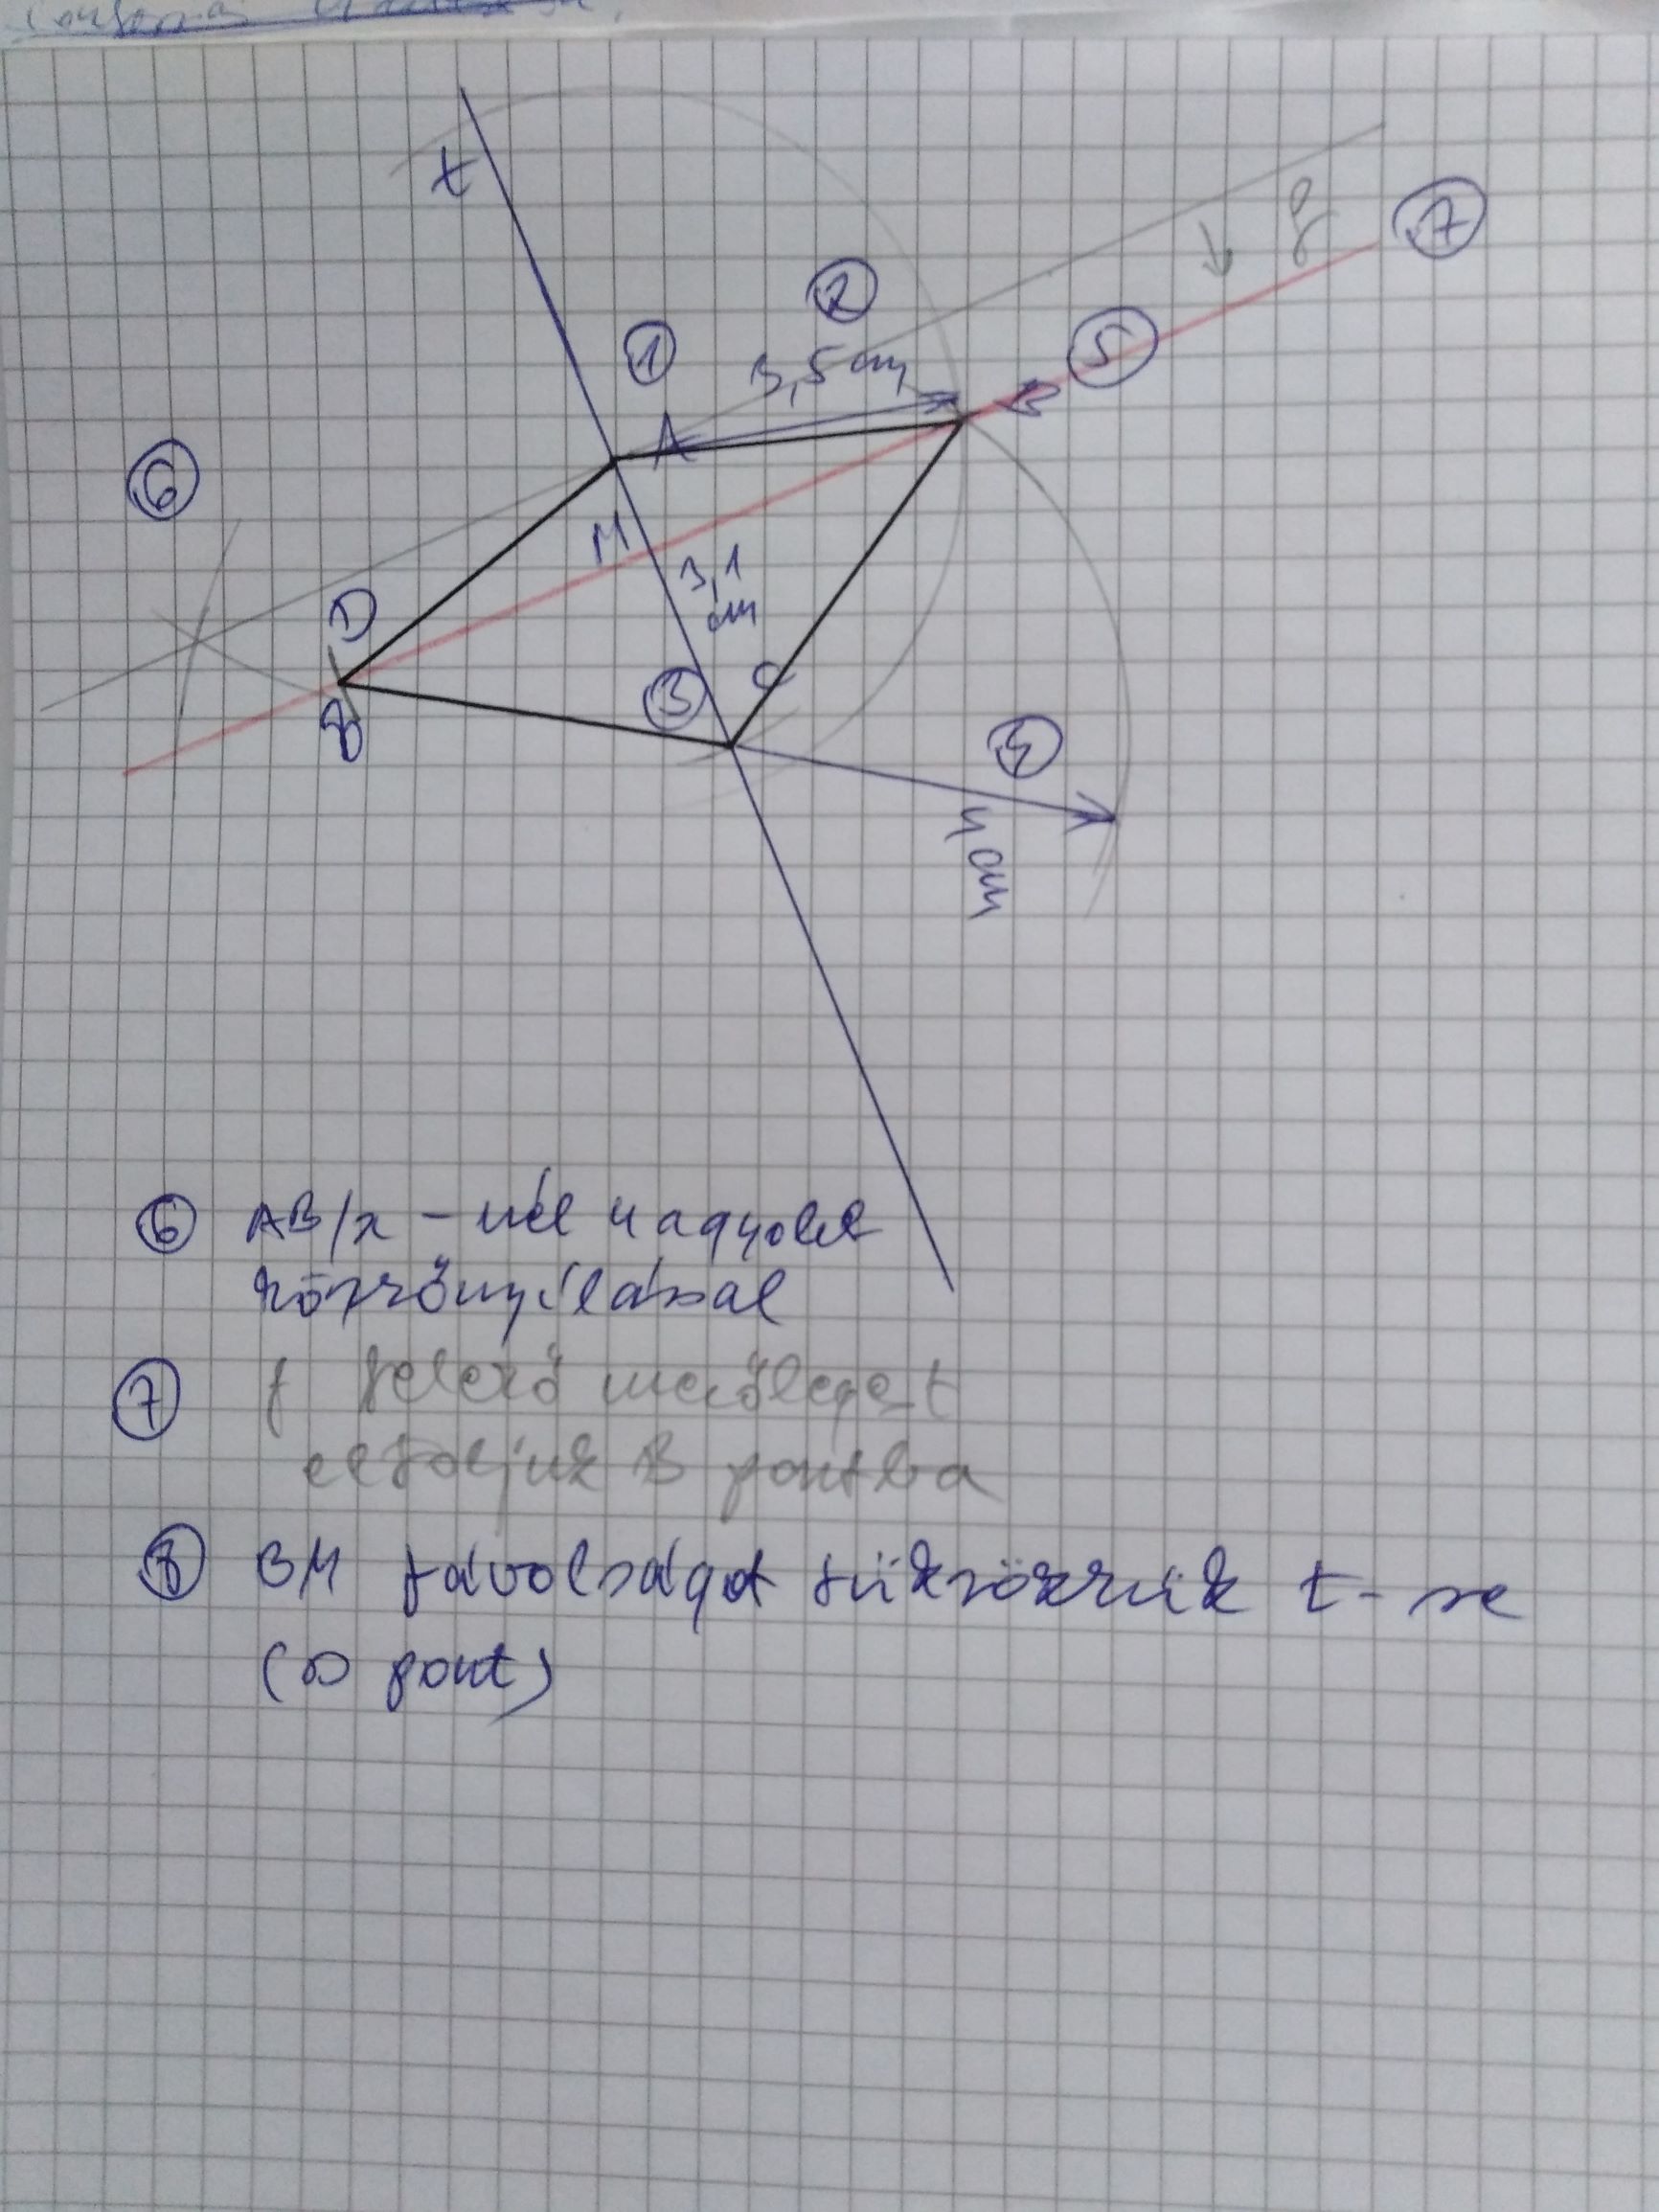 t
7
f
2
1
5
3,5 cm
B
A
6
M
3,1
cm
D
C
3
B
4
4 cm
6 AB/2 - nél nagyobb
körzőnyílással
7 f felező merőlegest
eltoljuk B pontba
8 BM távolságot tükrözzük t-re
(D pont)